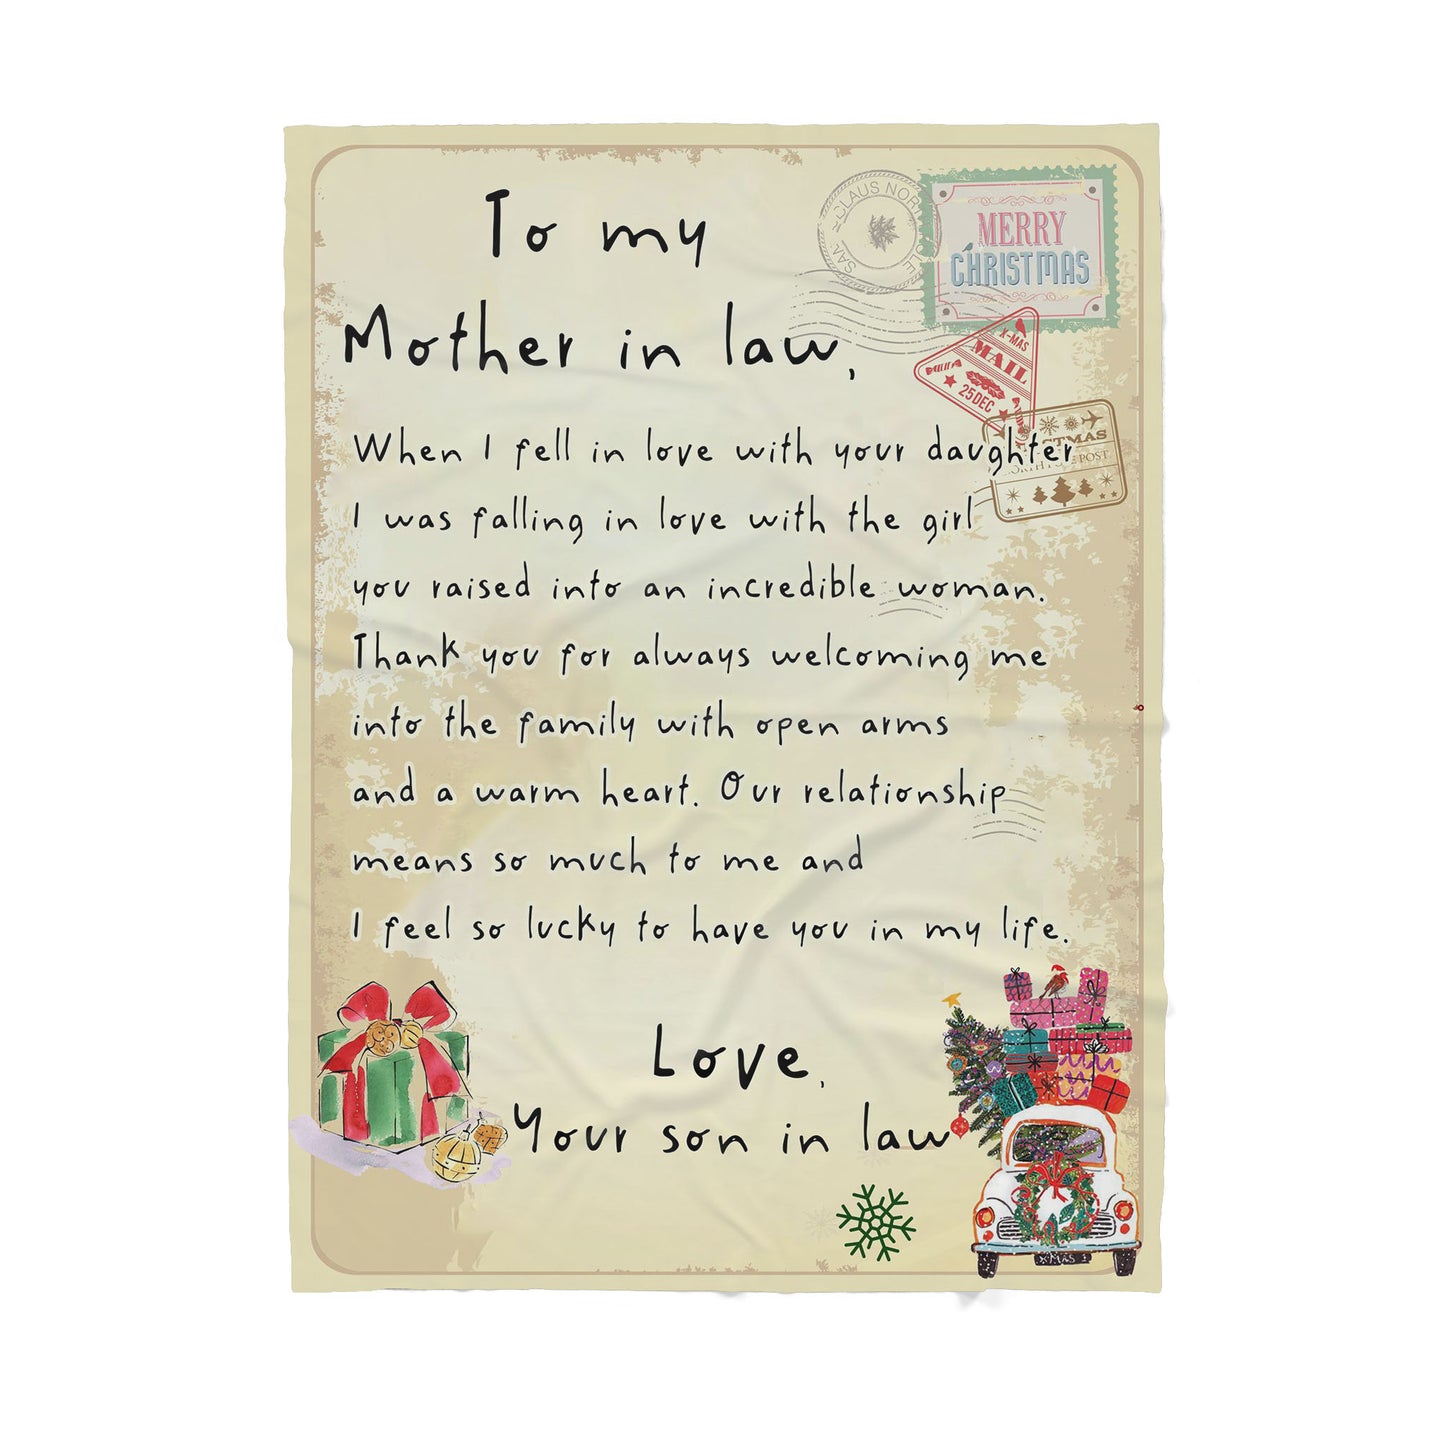 To my
Mother in law,
When I fell in love with your daughter
I was falling in love with the girl
you raised into an incredible woman.
Thank you for always welcoming me
into the family with open arms
and a warm heart. Our relationship
means so much to me and
I feel so lucky to have you in my life.
Love,
Your son in law
MERRY
CHRISTMAS
X-MAS
MAIL
25 DEC
POST
XMAS